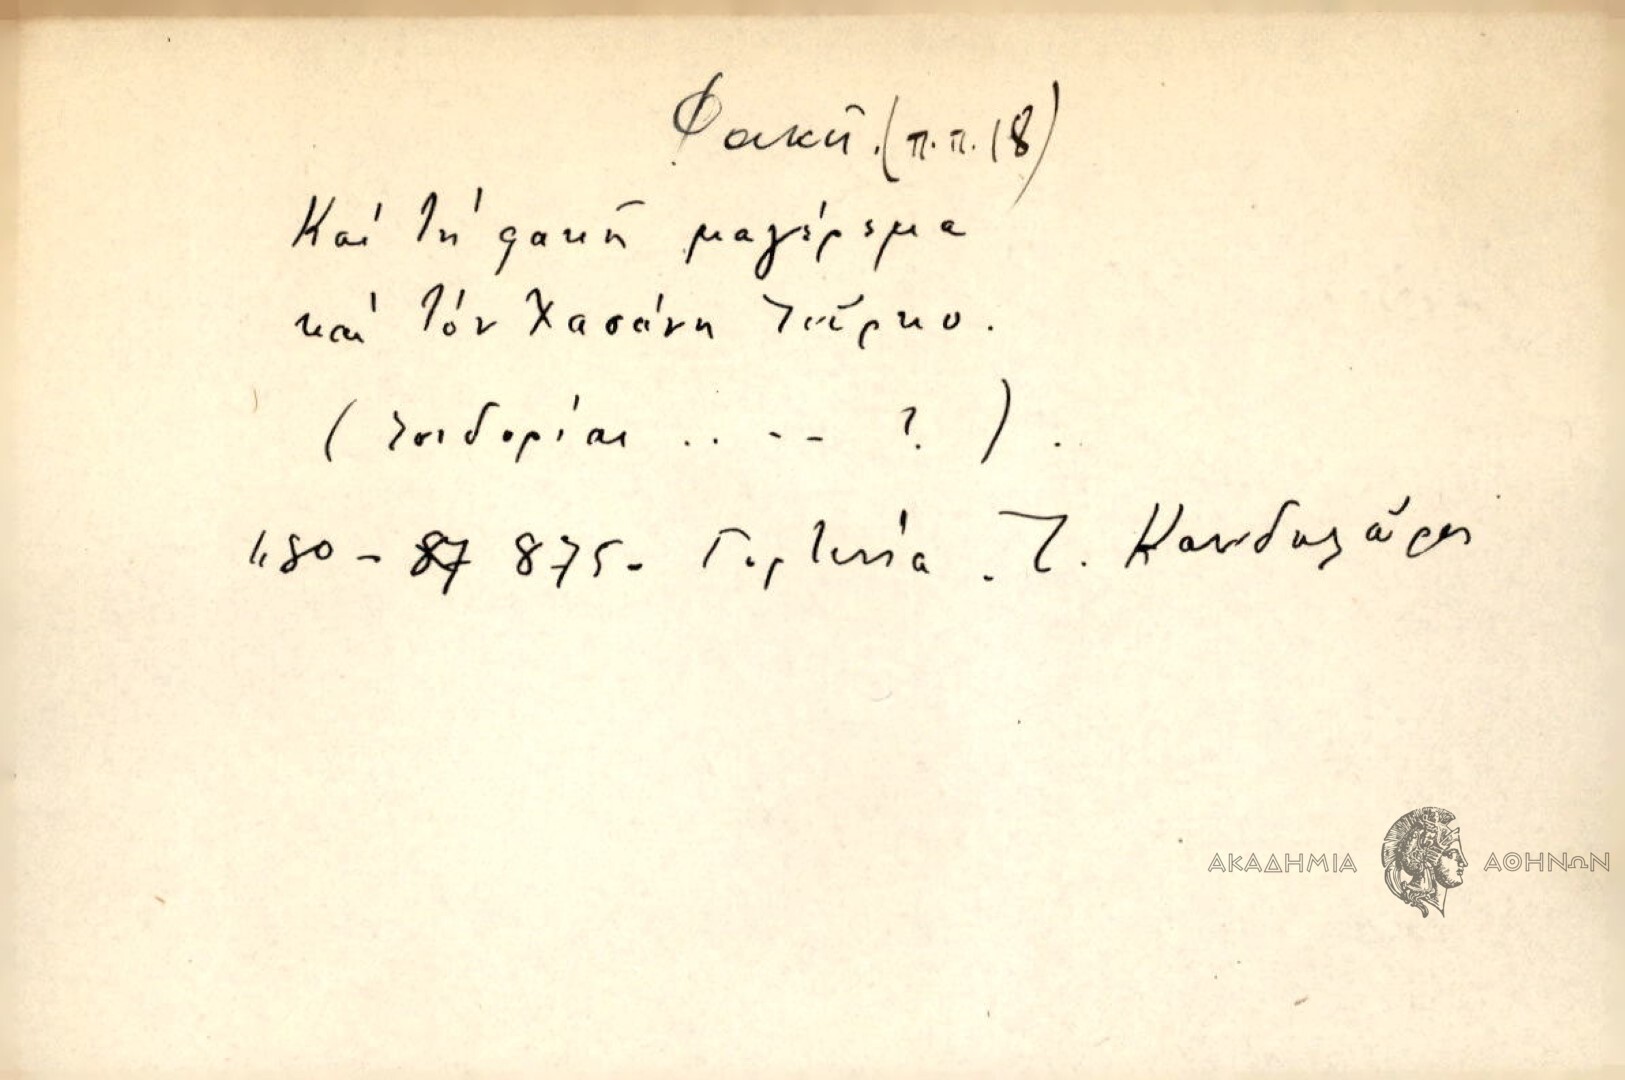 Φακῆ. (π.π. 18)
Καί τή φακῆ μαγέρεμα
καί τόν Χασάνη Τοῦρκο.
( .. -- ? ) .
480 - 87 875 - Γορτυνία . Τ. Κανδηλώρου
ΑΚΑΔΗΜΙΑ ΑΘΗΝΩΝ